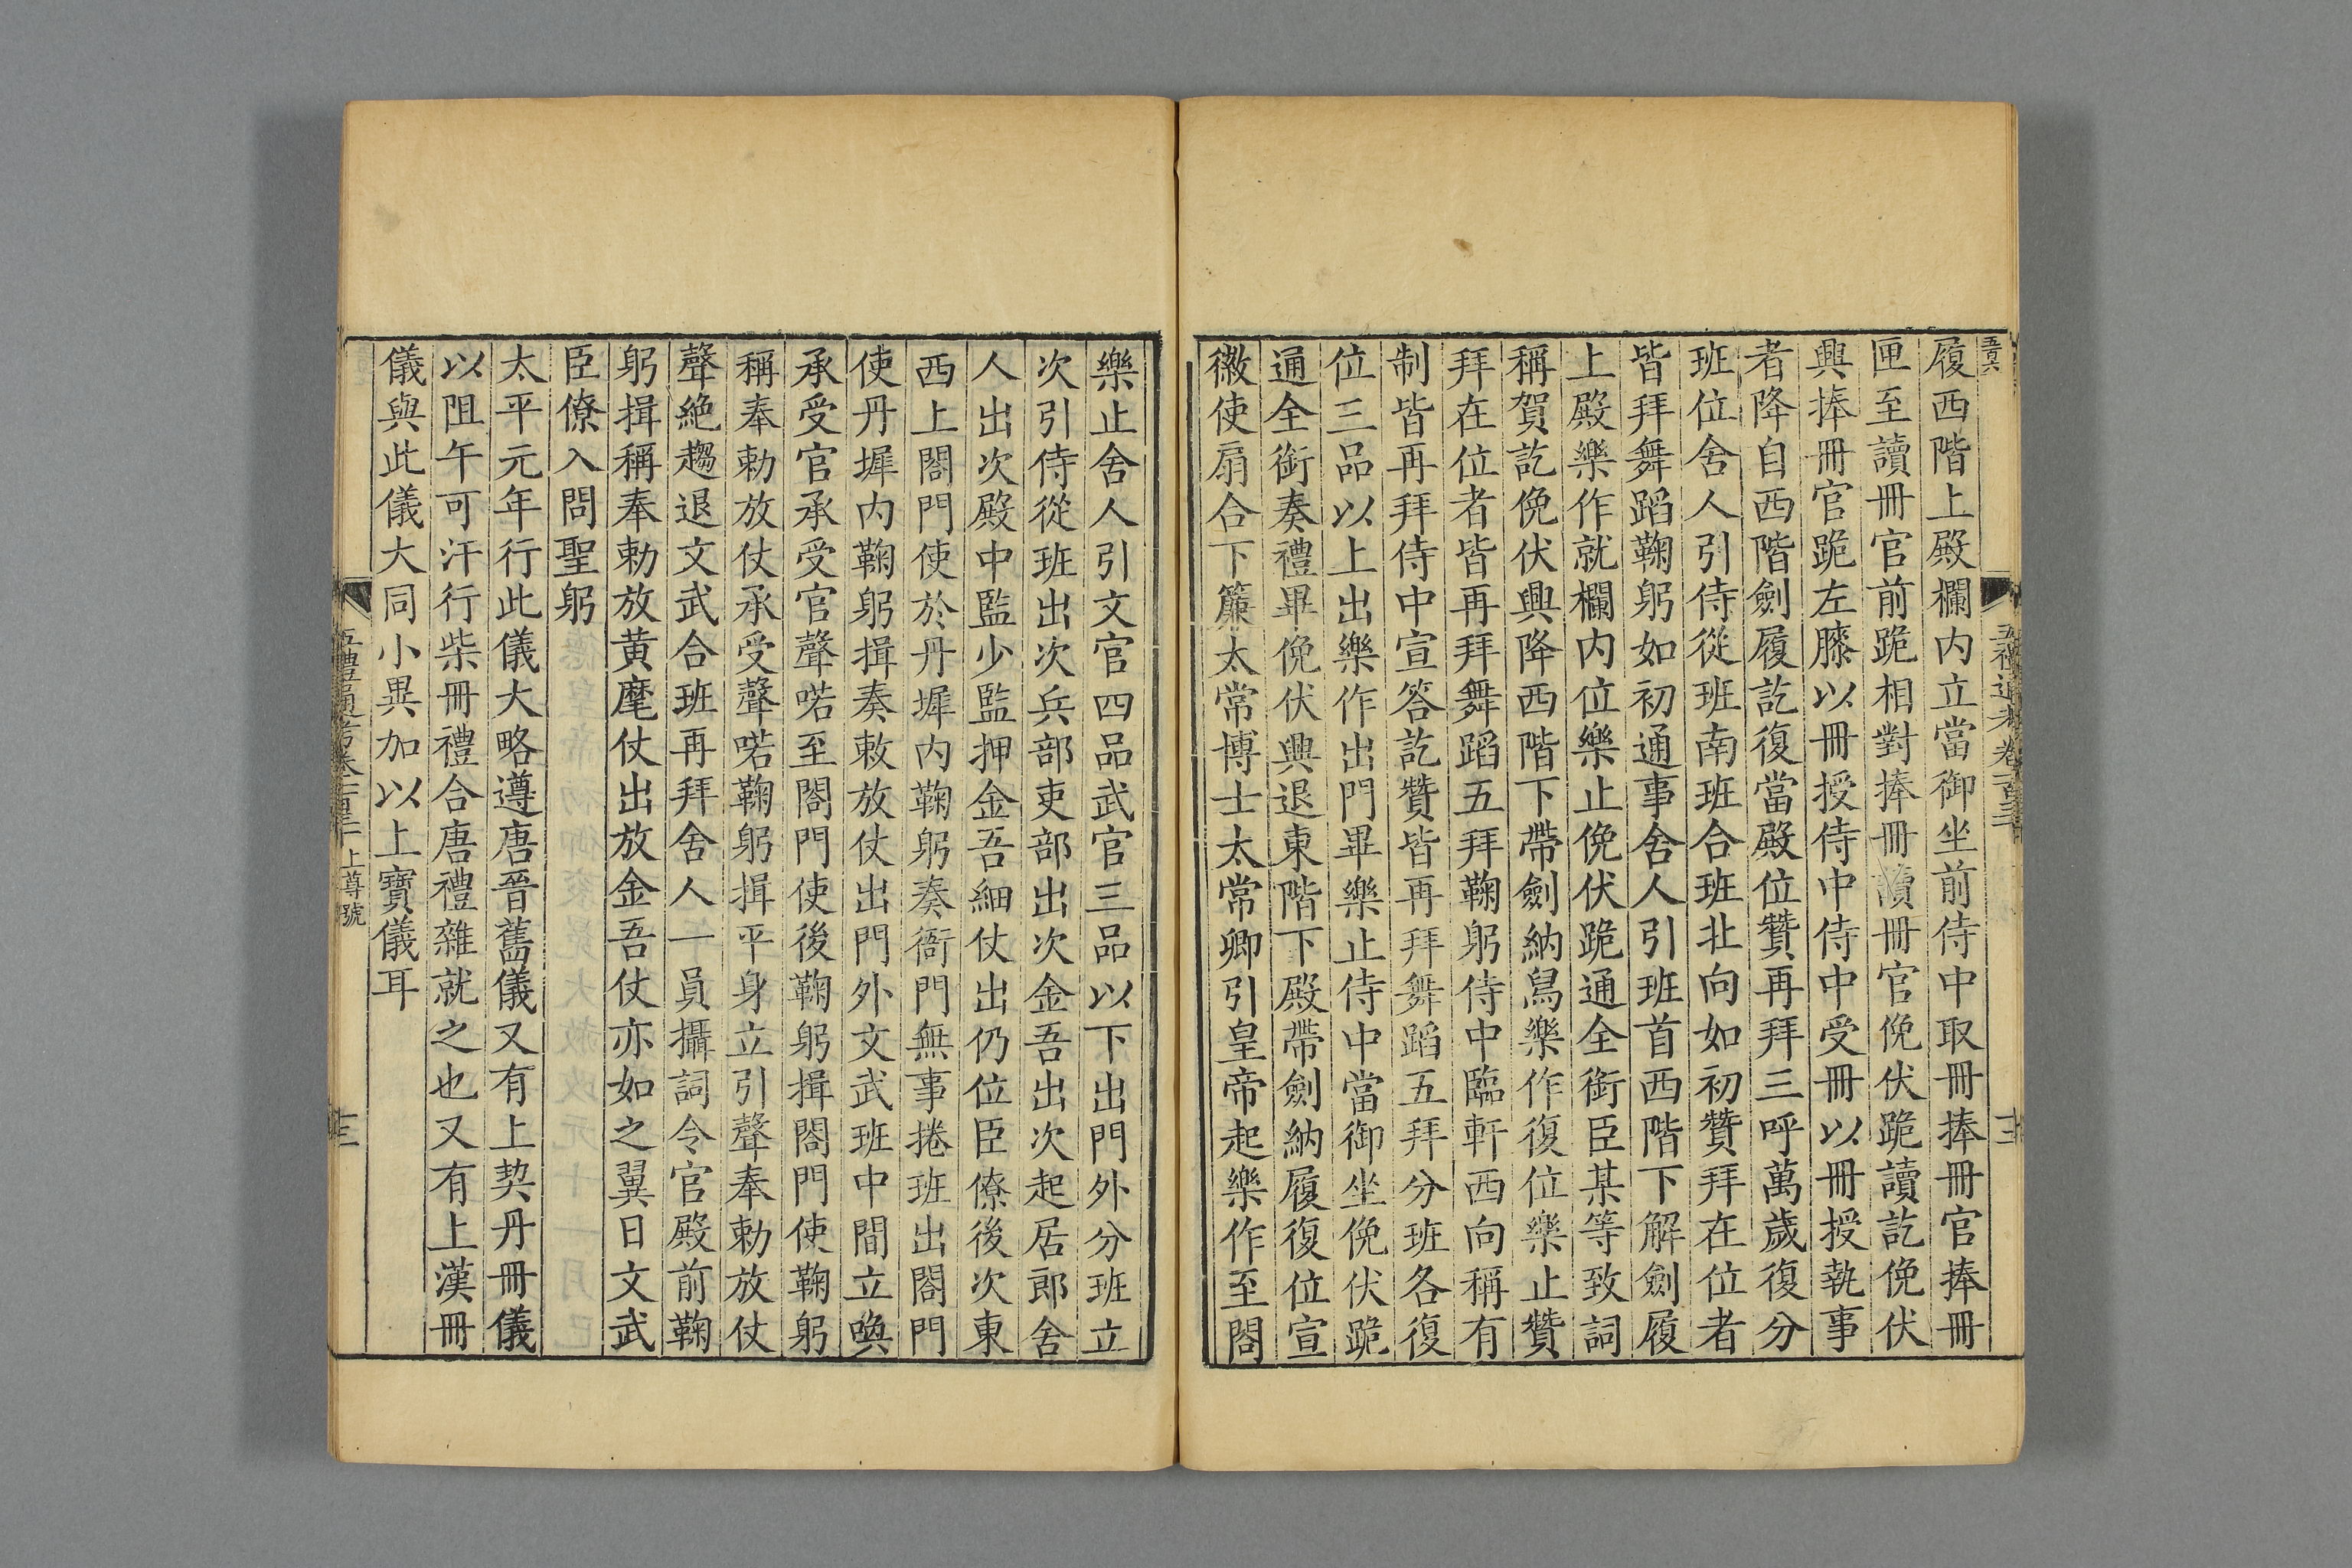 履西階上殿欄内立當御坐前侍中取冊捧冊官捧冊
匣至讀冊官前跪相對捧冊讀冊官俛伏跪讀訖俛伏
興捧冊官跪左膝以冊授侍中侍中受冊以冊授執事
者降自西階劍履訖復當殿位贊再拜三呼萬歲復分
班位舍人引侍從班南班合班北向如初贊拜在位者
皆拜舞蹈鞠躬如初通事舍人引班首西階下解劍履
上殿樂作就欄内位樂止俛伏跪通全銜臣某等致詞
稱賀訖俛伏興降西階下帶劍納舄樂作復位樂止贊
拜在位者皆再拜舞蹈五拜鞠躬侍中臨軒西向稱有
制皆再拜侍中宣答訖贊皆再拜舞蹈五拜分班各復
位三品以上出樂作出門畢樂止侍中當御坐俛伏跪
通全銜奏禮畢俛伏興退東階下殿帶劍納履復位宣
徽使扇合下簾太常博士太常卿引皇帝起樂作至閤
樂止舍人引文官四品武官三品以下出門外分班立
次引侍從班出次兵部吏部出次金吾出次起居郎舍
人出次殿中監少監押金吾細仗出仍位臣僚後次東
西上閤門使於丹墀内鞠躬奏衙門無事捲班出閤門
使丹墀内鞠躬揖奏敕放仗出門外文武班中間立喚
承受官承受官聲喏至閤門使後鞠躬揖閤門使鞠躬
稱奉勅放仗承受聲喏鞠躬揖平身立引聲奉勅放仗
聲絶趨退文武合班再拜舍人一員攝詞令官殿前鞠
躬揖稱奉勅放黄麾仗出放金吾仗亦如之翼日文武
臣僚入問聖躬
太平元年行此儀大略遵唐晉舊儀又有上契丹冊儀
以阻午可汗行柴冊禮合唐禮雜就之也又有上漢冊
儀與此儀大同小異加以上寶儀耳
上尊號